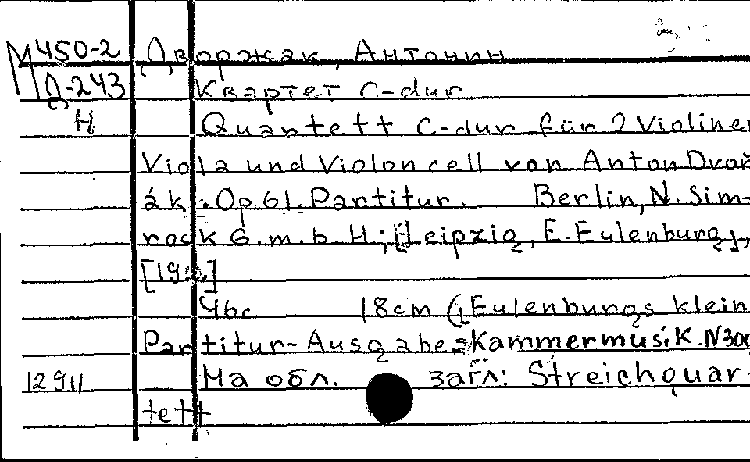 М450-2 Дворжак, Антонин
Д-243 Квартет C-dur
Н Quartett C-dur für 2 Violinen
Viola und Violoncell von Anton Dvoř-
ák. Op. 61. Partitur. Berlin, N. Sim-
rock G.m.b.H; Leipzig, E. Eulenburg,
46c 18cm (Eulenburgs klein
Partitur-Ausgabe: Kammermusik. N
12911 На обл. загл: Streichquar-
tett